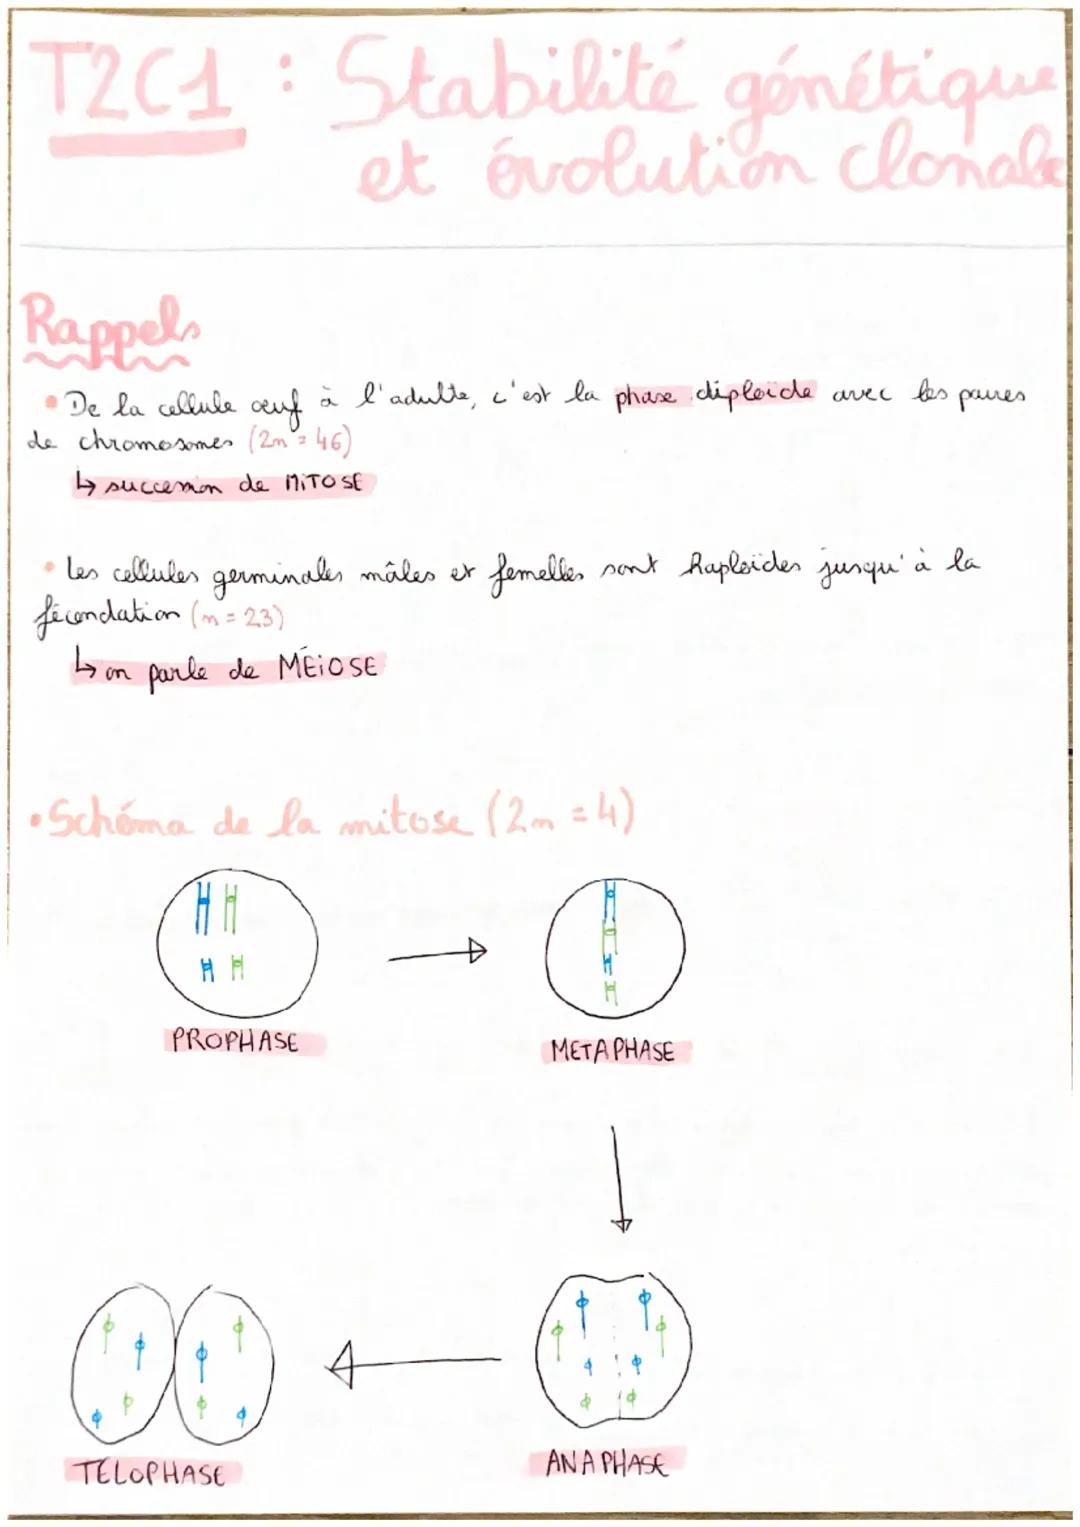 T2C1 : Stabilité génétique
et évolution clonale
Rappels
• De la cellule œuf à l'adulte, c'est la phase diploïde avec les paires
de chromosomes (2n = 46)
↳ succession de MITOSE
• Les cellules germinales mâles et femelles sont haploïdes jusqu'à la
fécondation (n = 23)
↳ on parle de MÉIOSE
• Schéma de la mitose (2n = 4)
PROPHASE
METAPHASE
TÉLOPHASE
ANAPHASE